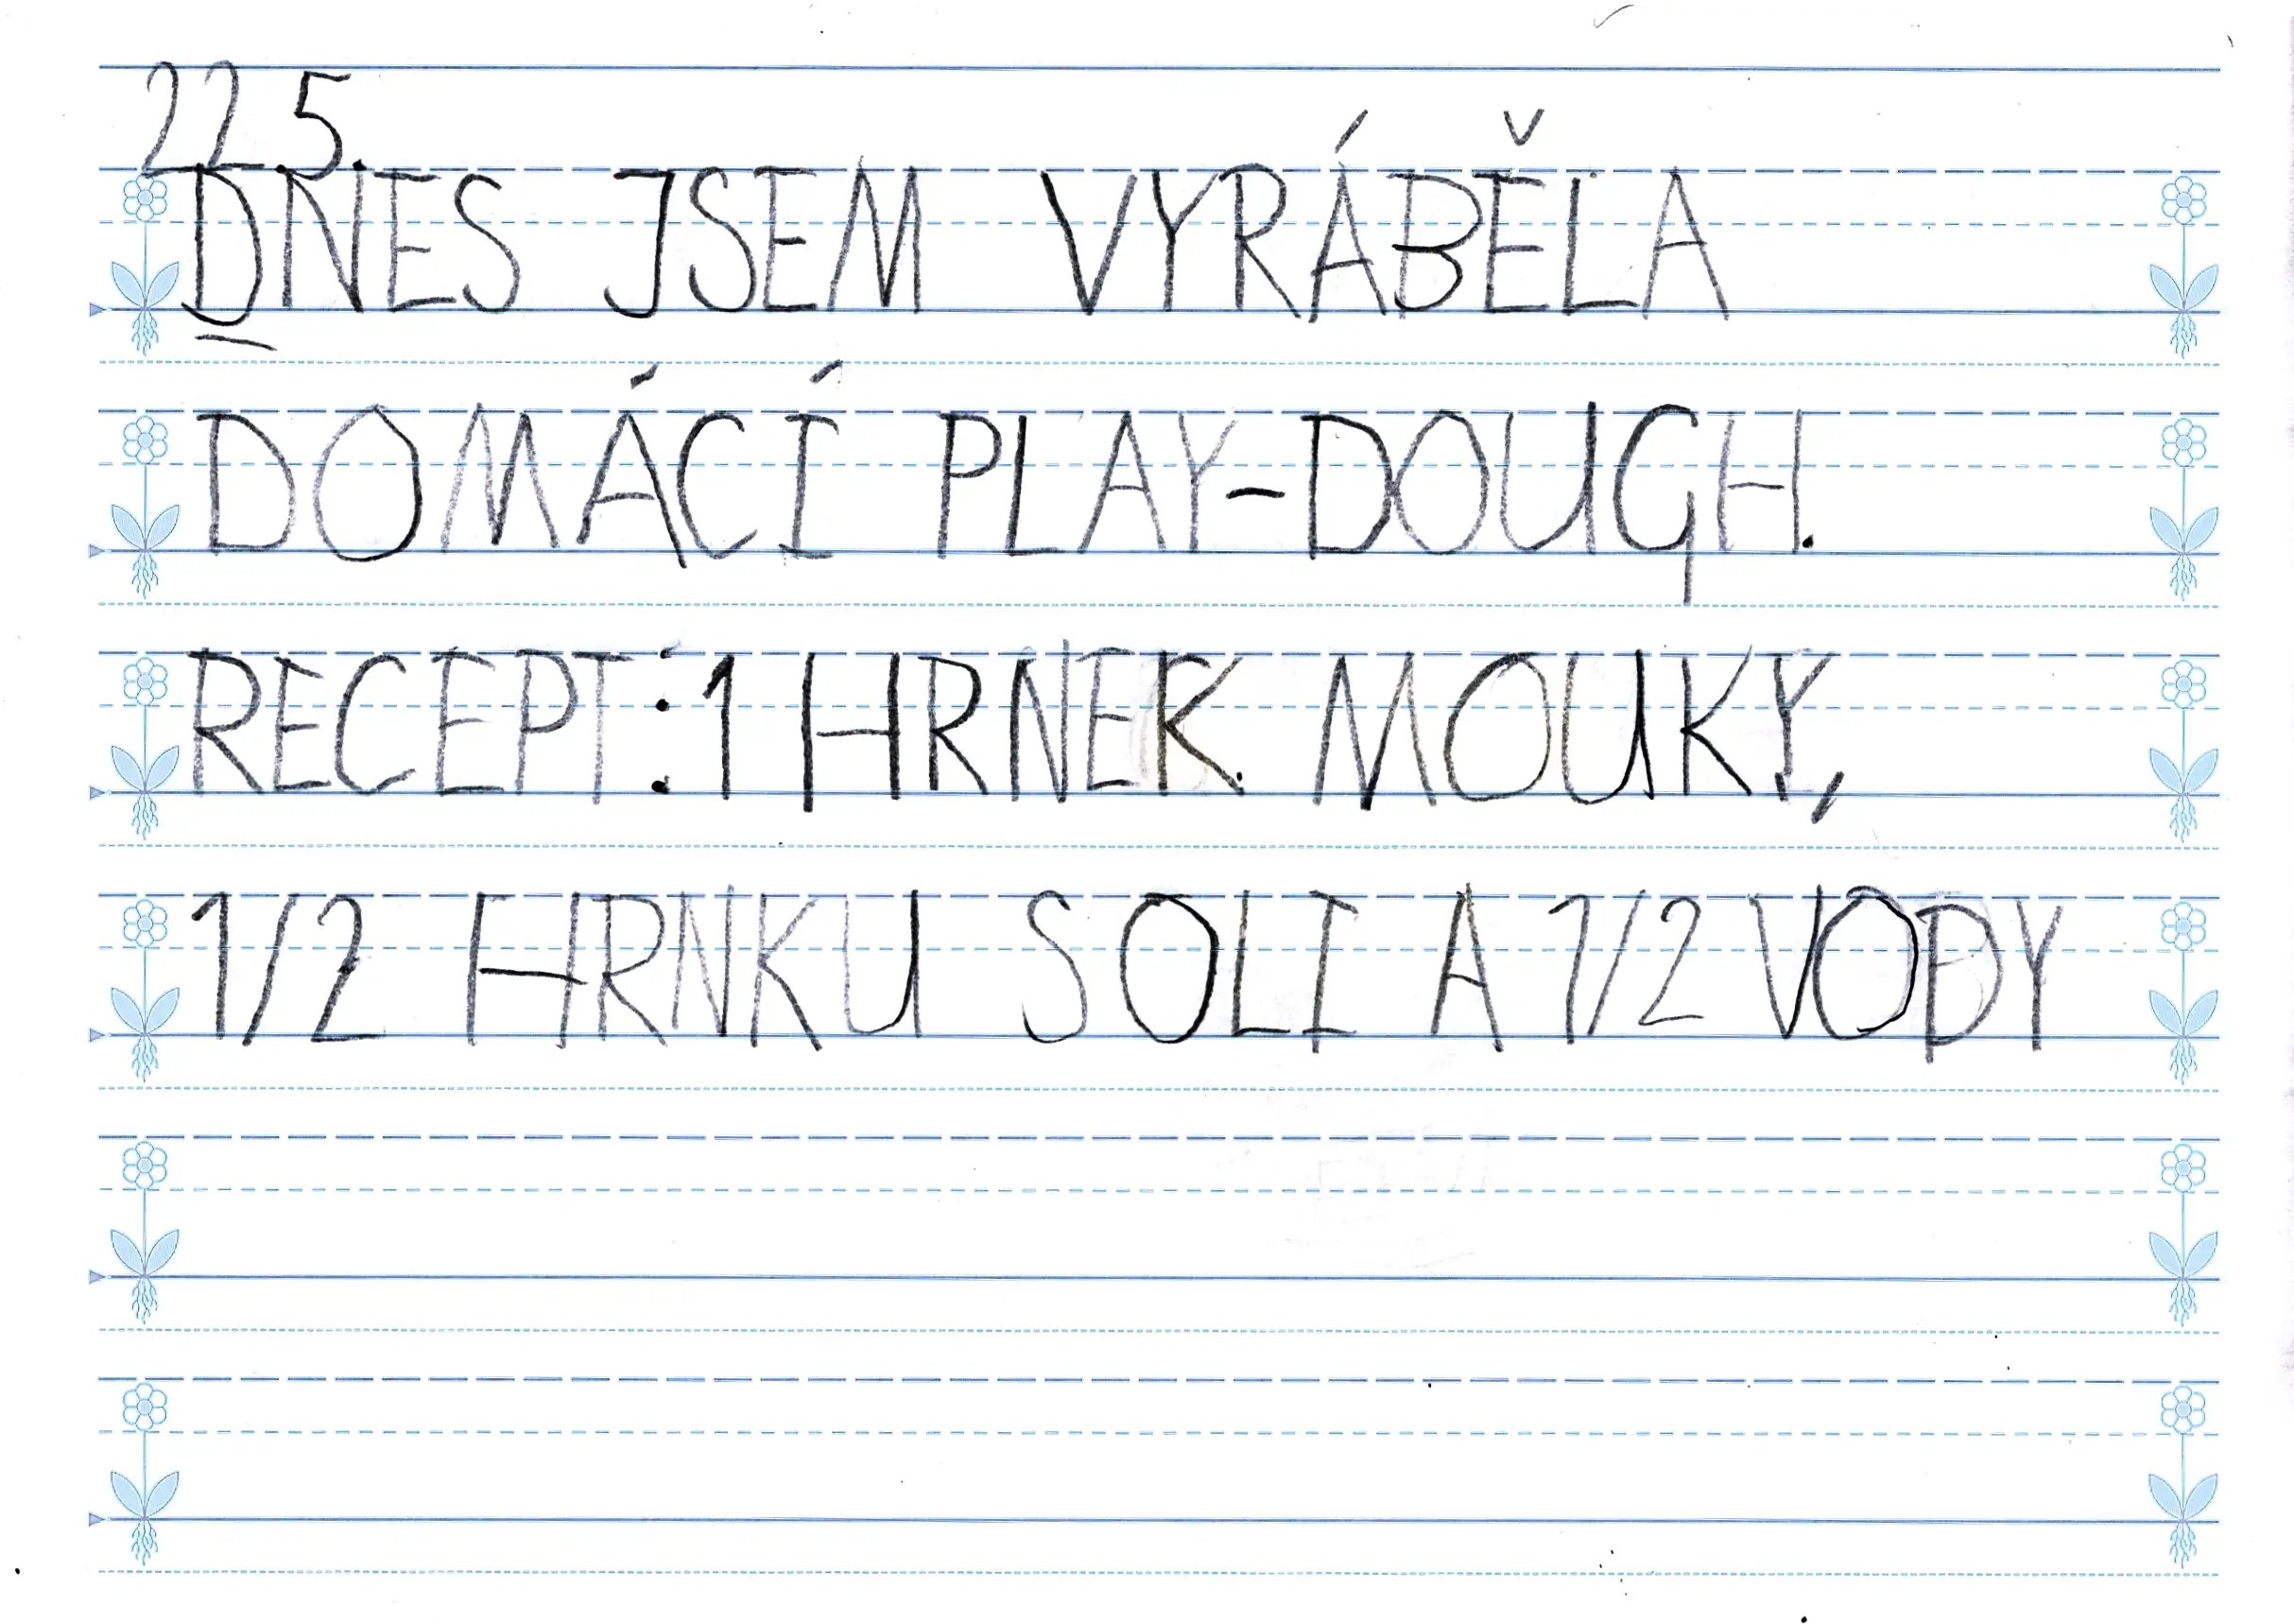 22.5.
DNES JSEM VYRÁBĚLA
DOMÁCÍ PLAY-DOUGH.
RECEPT: 1 HRNEK. MOUKY,
1/2 HRNKU SOLI A 1/2 VODY